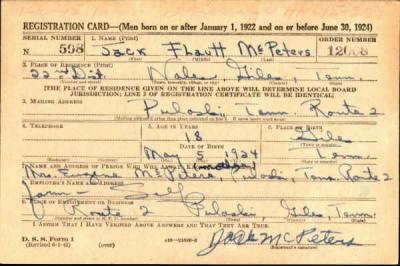 REGISTRATION CARD—(Men born on or after January 1, 1922 and on or before June 30, 1924)
SERIAL NUMBER 1. NAME (Print) ORDER NUMBER
N. 598 Jack Flavtt McPeters
(First) (Middle) (Last)
2. PLACE OF RESIDENCE (Print)
22nd Dist. Wales, Giles, Tenn.
[THE PLACE OF RESIDENCE GIVEN ON THE LINE ABOVE WILL DETERMINE LOCAL BOARD
JURISDICTION; LINE 2 OF REGISTRATION CERTIFICATE WILL BE IDENTICAL]
3. MAILING ADDRESS
Pulaski, Tenn. Route 2
4. TELEPHONE 5. AGE IN YEARS 6. PLACE OF BIRTH
18 Giles
DATE OF BIRTH
May 5 1924 Tenn.
7. NAME AND ADDRESS OF PERSON WHO WILL ALWAYS KNOW YOUR ADDRESS
(mother)
Mrs. Eugene McPeters, Pulaski, Tenn. Route 2
8. EMPLOYER'S NAME AND ADDRESS
Farm - Self
9. PLACE OF EMPLOYMENT OR BUSINESS
Route 2 Pulaski, Giles, Tenn.
I AFFIRM THAT I HAVE VERIFIED ABOVE ANSWERS AND THAT THEY ARE TRUE.
D. S. S. Form 1
Jack McPeters